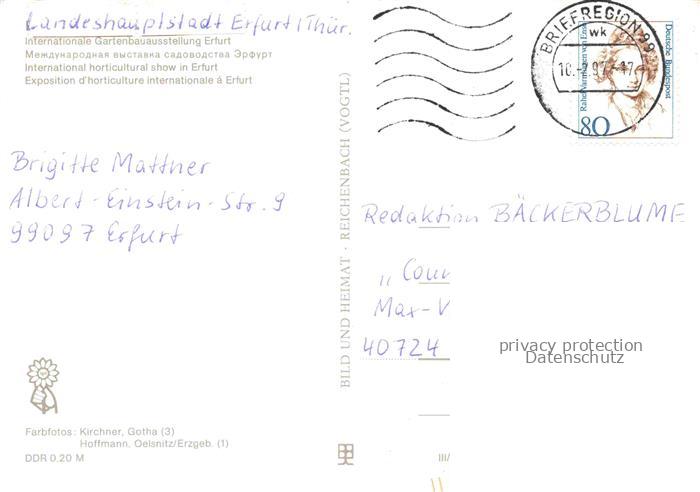 Landeshauptstadt Erfurt/Thür.
Internationale Gartenbauausstellung Erfurt
Международная выставка садоводства Эрфурт
International horticultural show in Erfurt
Exposition d'horticulture internationale á Erfurt
Brigitte Mattner
Albert-Einstein-Str. 9
99097 Erfurt
Farbfotos: Kirchner, Gotha (3)
Hoffmann, Oelsnitz/Erzgeb. (1)
DDR 0.20 M
BILD UND HEIMAT · REICHENBACH (VOGTL)
BRIEFREGION 99
wk
Deutsche Bundespost
80
Redaktion BÄCKERBLUME
Max-V
40724
privacy protection
Datenschutz
III/